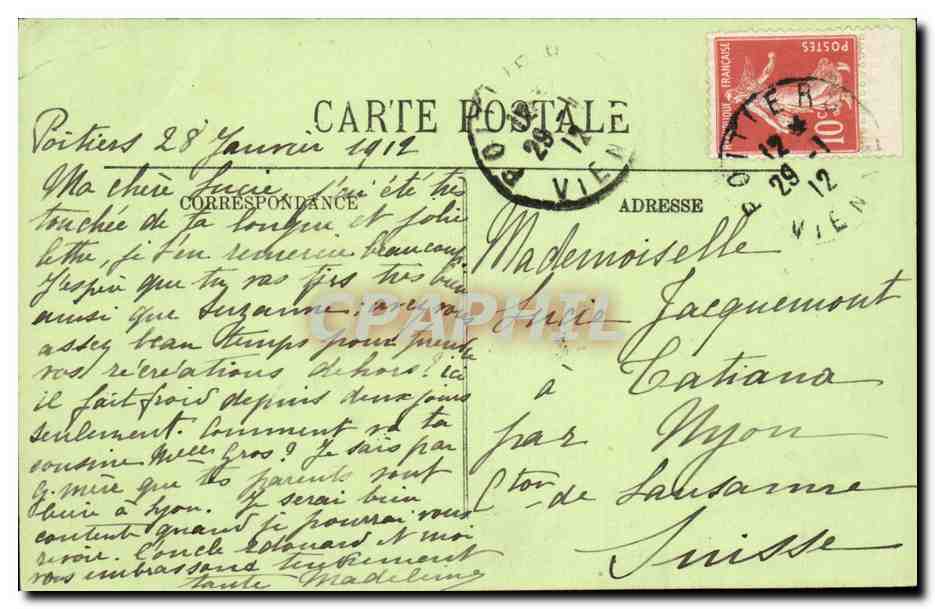 CARTE POSTALE
Poitiers 28 Janvier 1912
CORRESPONDANCE
Ma chère Lucie, j'ai été très
touchée de ta longue et jolie
lettre, je t'en remercie beaucoup
J'espère que tu vas très bien
ainsi que Suzanne; avez vous
assez beau temps pour prendre
vos récréations dehors? ici
il fait froid depuis deux jours
seulement. Comment va ta
cousine Melle Gros? Je sais par
g. mère que tes parents vont
bien à Lyon. Je serai bien
contente quand je pourrai vous
revoir. L'oncle Edouard et moi
vous embrassons tendrement
tante Madeleine
ADRESSE
Mademoiselle
Lucie Jacquemont
à Tatiana
par Nyon
Cton de Lausanne
Suisse
POSTES
FRANÇAISE
10c
POITIERS
12 *
29 -1
12
VIEN
POITIERS
29 -1
12
VIEN
CPAPHIL